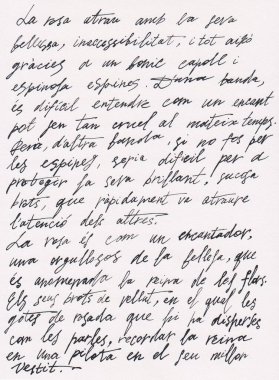 La rosa atrau amb la seva
bellesa, inaccessibilitat, i tot això
gràcies a un bonic capoll i
espinosa espines. D'una banda,
és difícil entendre com un encant
pot fen tan cruel al mateix temps.
Però, d'altra banda, si no fos per
les espines, seria difícil per a
protegir la seva brillant, sucosa
brots, que ràpidament va atraure
l'atenció dels altres.
La rosa és com un encantador,
una orgullosos de la bellesa, que
és anomenada la reina de les flors.
Els seus brots de vellut, en el qual les
gotes de rosada que hi ha disperses
com les perles, recordar la reina
en una pilota en el seu millor
vestit.